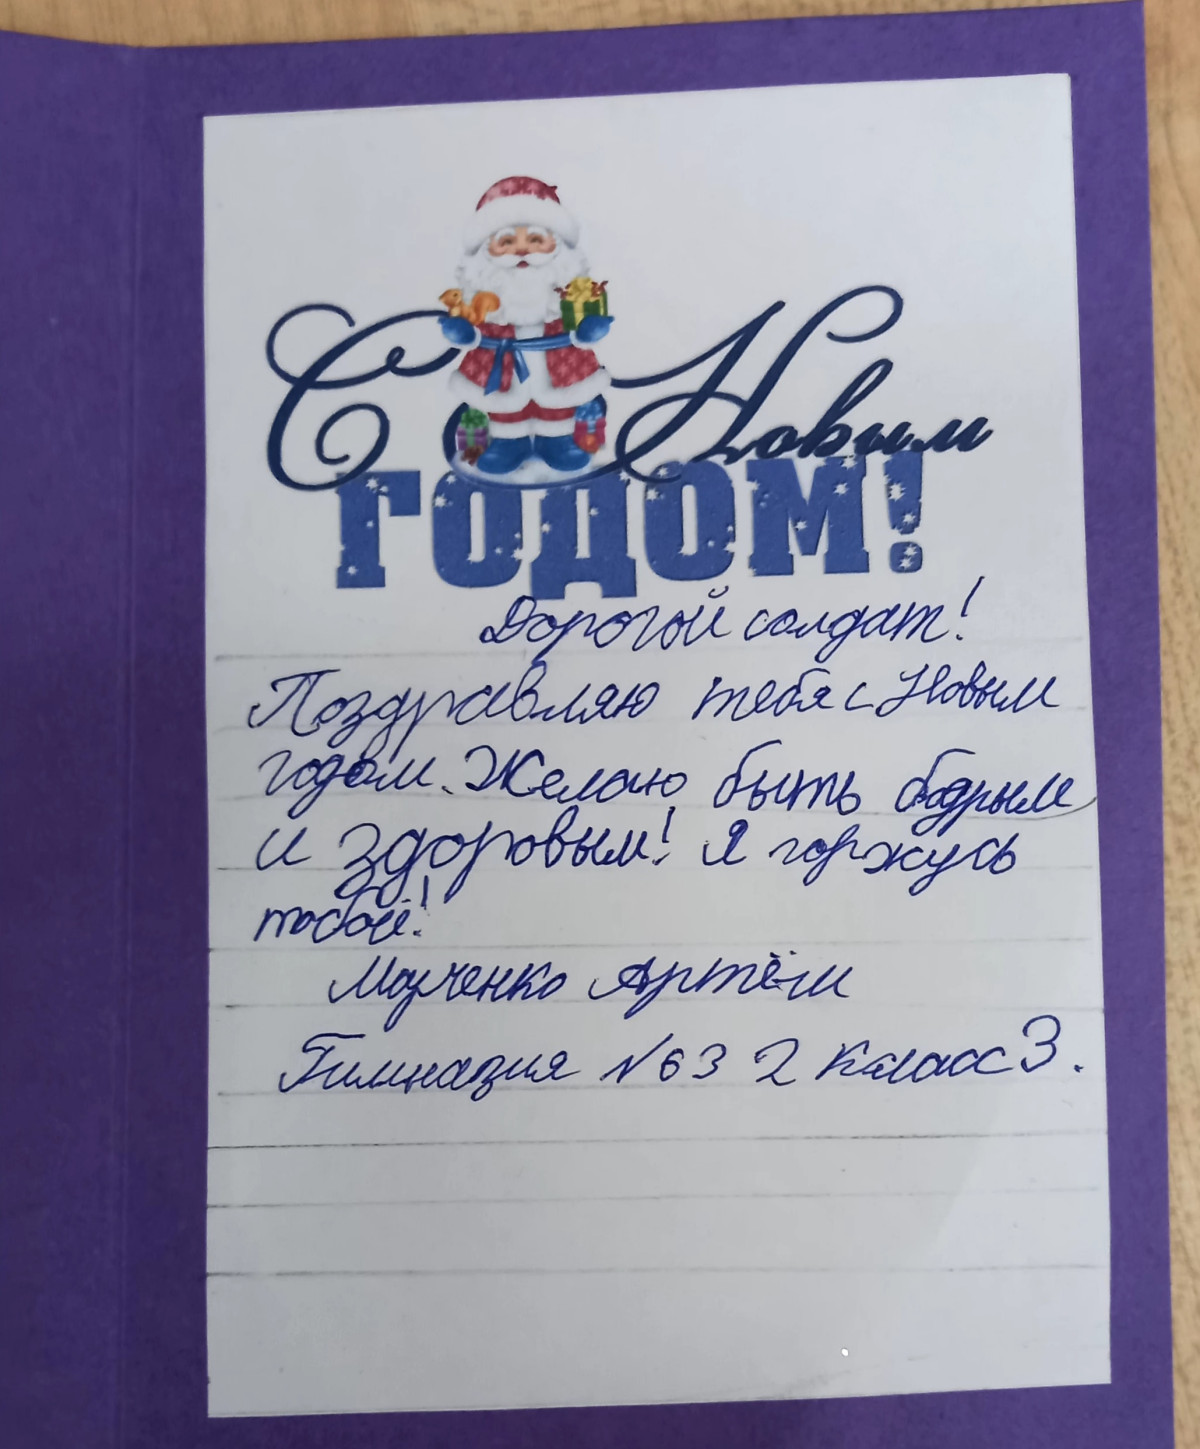 С Новым
ГОДОМ!
Дорогой солдат!
Поздравляю тебя с Новым
годом. Желаю быть бодрым
и здоровым! Я горжусь
тобой!
Артём
Гимназия №63 2 класс З.